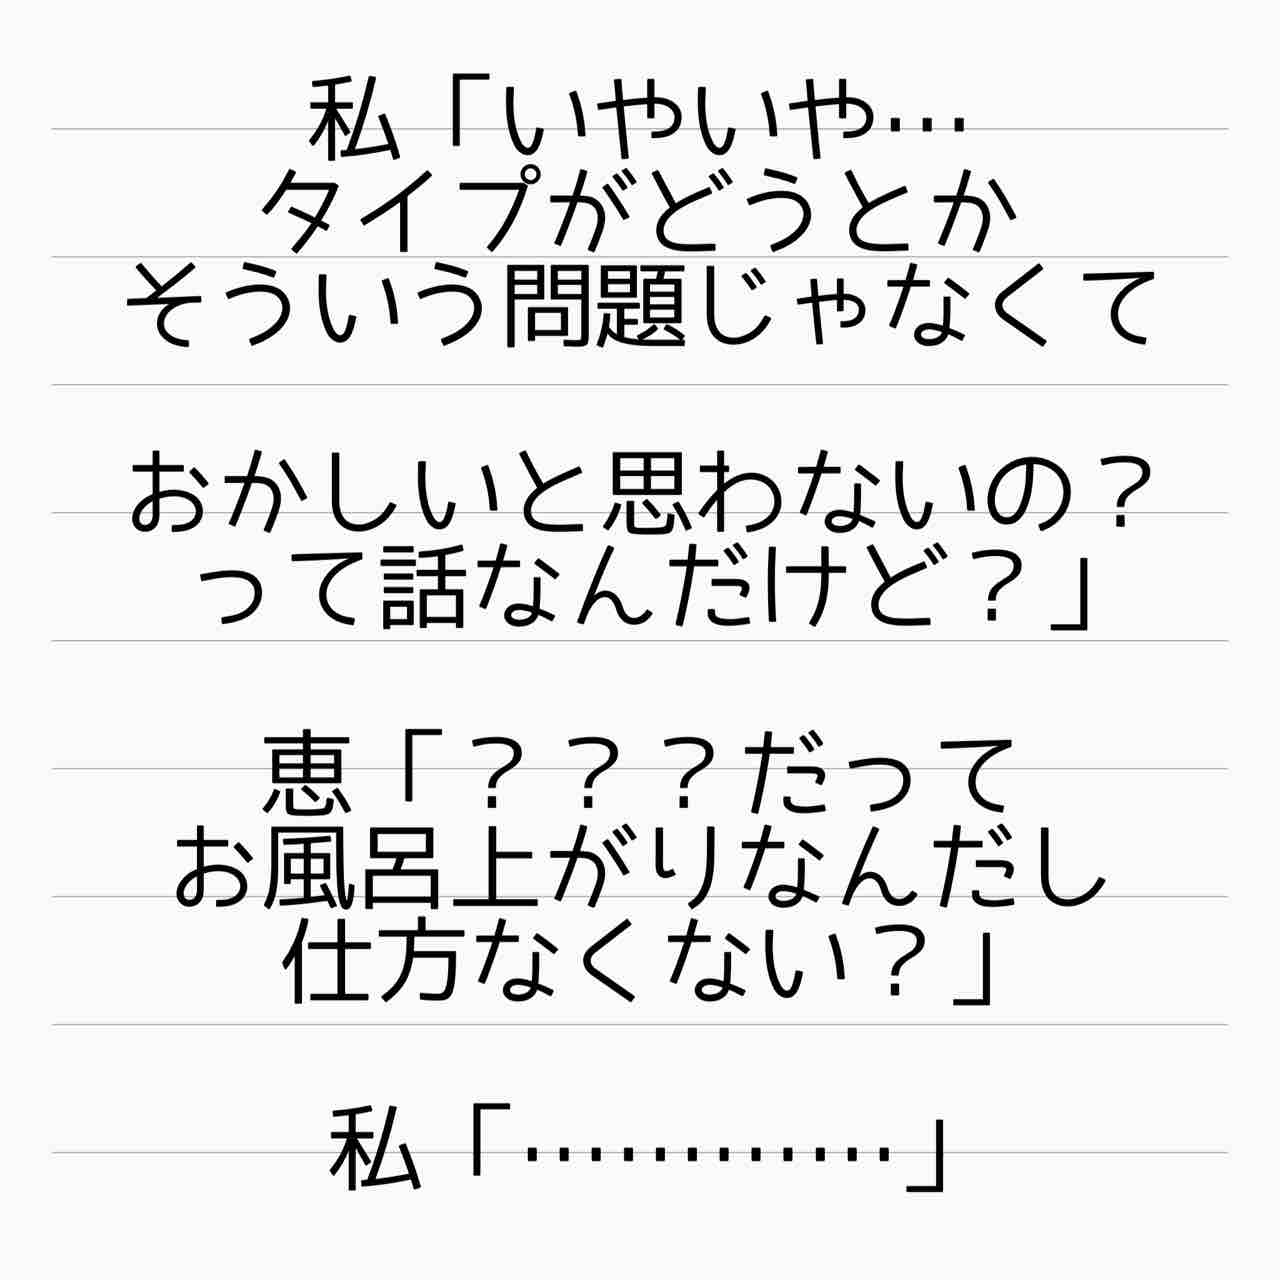 私「いやいや…
タイプがどうとか
そういう問題じゃなくて
おかしいと思わないの？
って話なんだけど？」
恵「？？？だって
お風呂上がりなんだし
仕方なくない？」
私「…………」